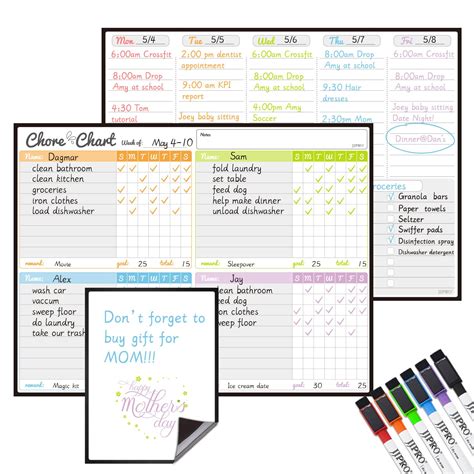 Mon 5/4 Tue 5/5 Wed 5/6 Thu 5/7 Fri 5/8
6:00am Crossfit 2:00 pm dentist appointment 6:00am Crossfit 8:00am Drop Any at school 6:00am Crossfit
8:00am Drop Any at school 8:00am Drop Any at school
9:00 am KPI report
4:30 Tom tutorial
Joey baby sitting
Joey baby sitting
Date Night!
Dinner@Dan's
groceries
Granola bars
Paper towels
Seltzer
Swiffer pads
Disinfection spray
Dishwasher detergent
Chore Chart Week of: May 4-10
Notes
Name: Dagmar S M T W T F S
clean bathroom
clean kitchen
groceries
iron clothes
load dishwasher
reward: Movie goal: 25 total: 15
Name: Sam S M T W T F S
fold laundry
set table
feed dog
help make dinner
unload dishwasher
reward: Sleepover goal: 25 total: 15
Name: Alex S M T W T F S
wash car
vaccum
feed dog
do laundry
take our trash
reward: Magic kit
Name: Jay S M T W T F S
clean bathroom
feed dog
clothes
reward: Ice cream date goal: 25 total: 15
Don't forget to
buy gift for
MOM!!!
happy
Mother's
day
JJPRO
JJPRO
JJPRO
JJPRO
JJPRO
JJPRO